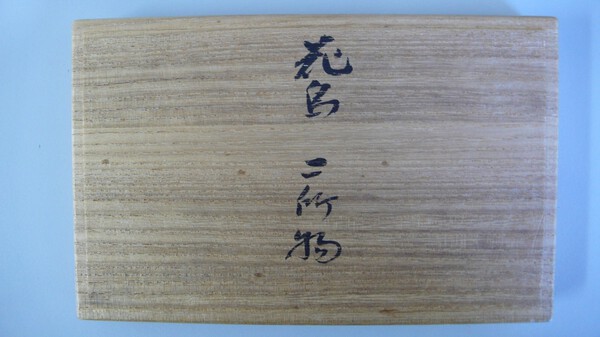 花鳥 二所物